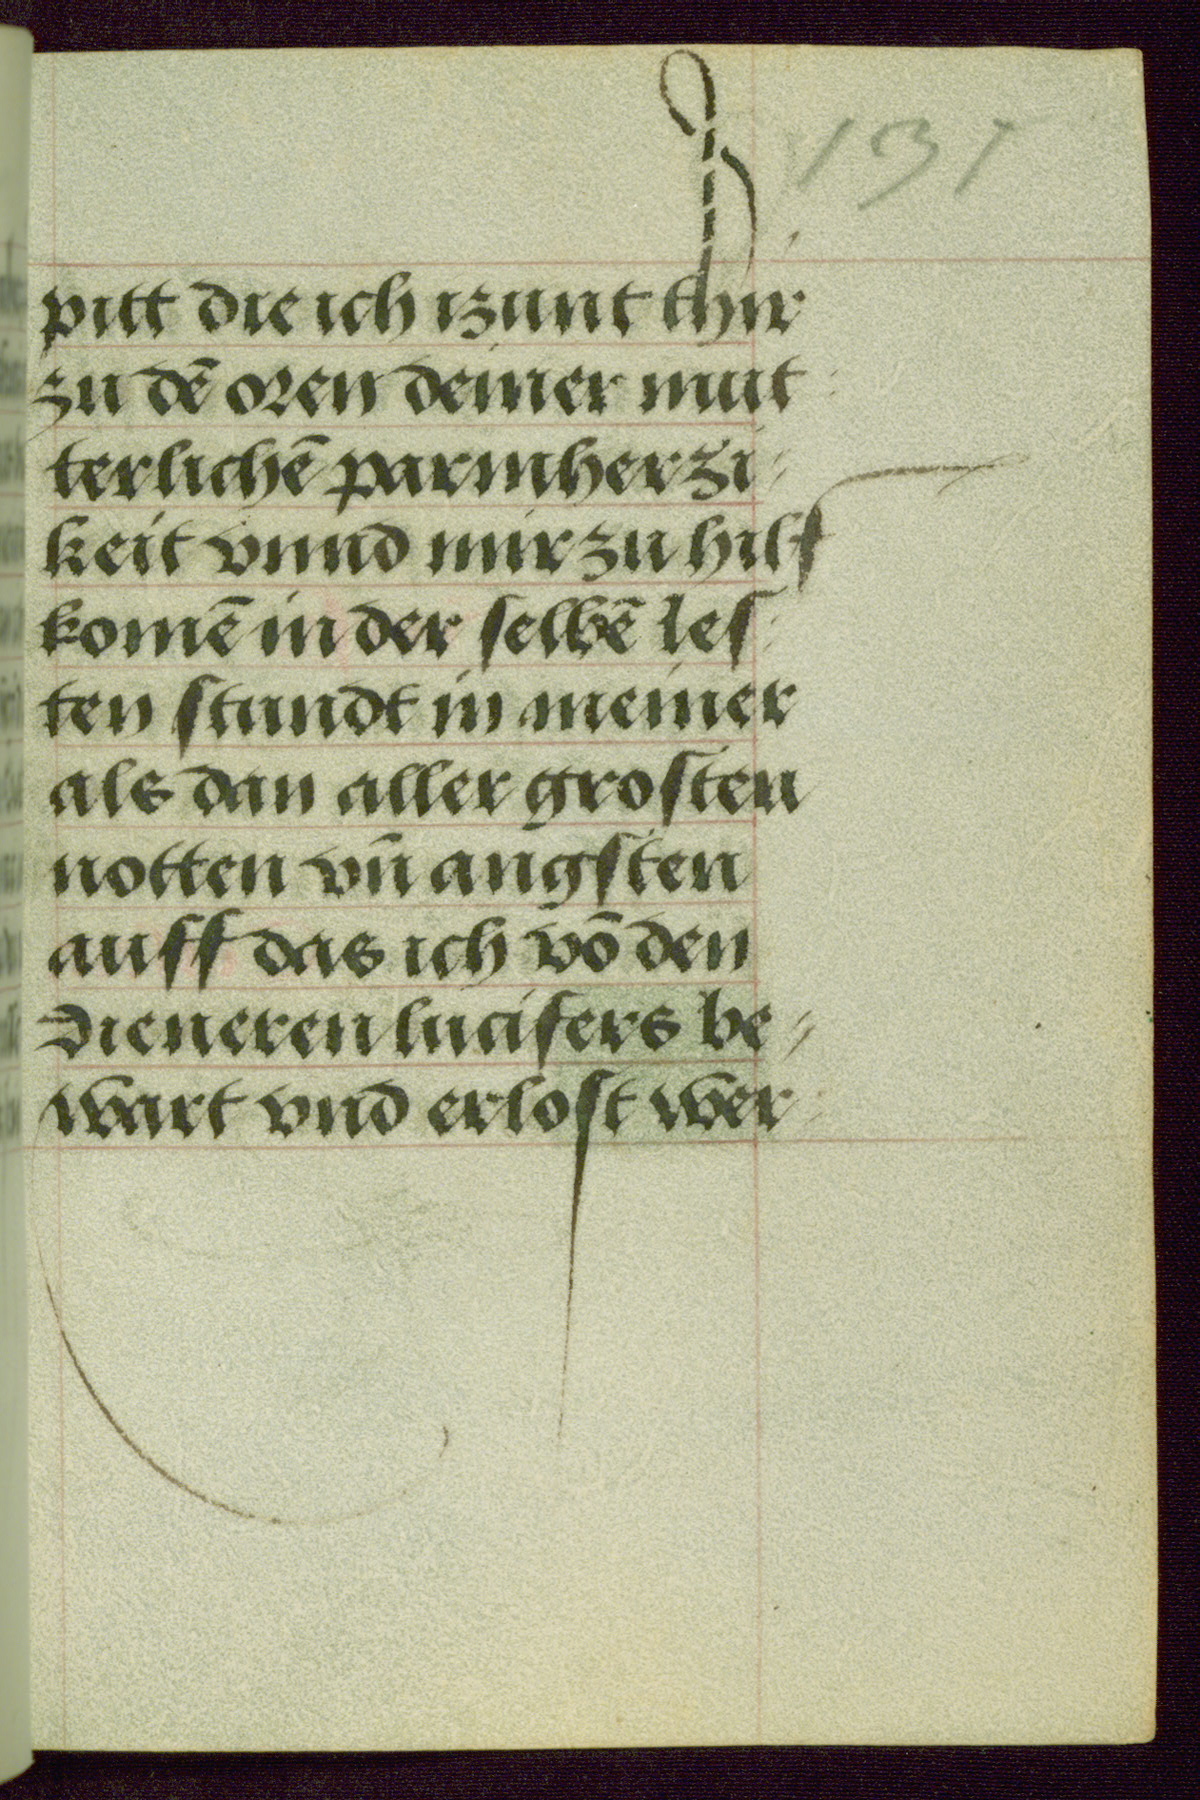 131
pitt die ich izunt thir
zu dē oren deiner mut
terlichē parmherzi-
keit vnnd mir zu hilf
komē in der selbē les
ten stundt in meiner
als dan aller grosten
notten vn̄ angsten
auff das ich vō den
dieneren lucifers be-
wart vnd erlost wer